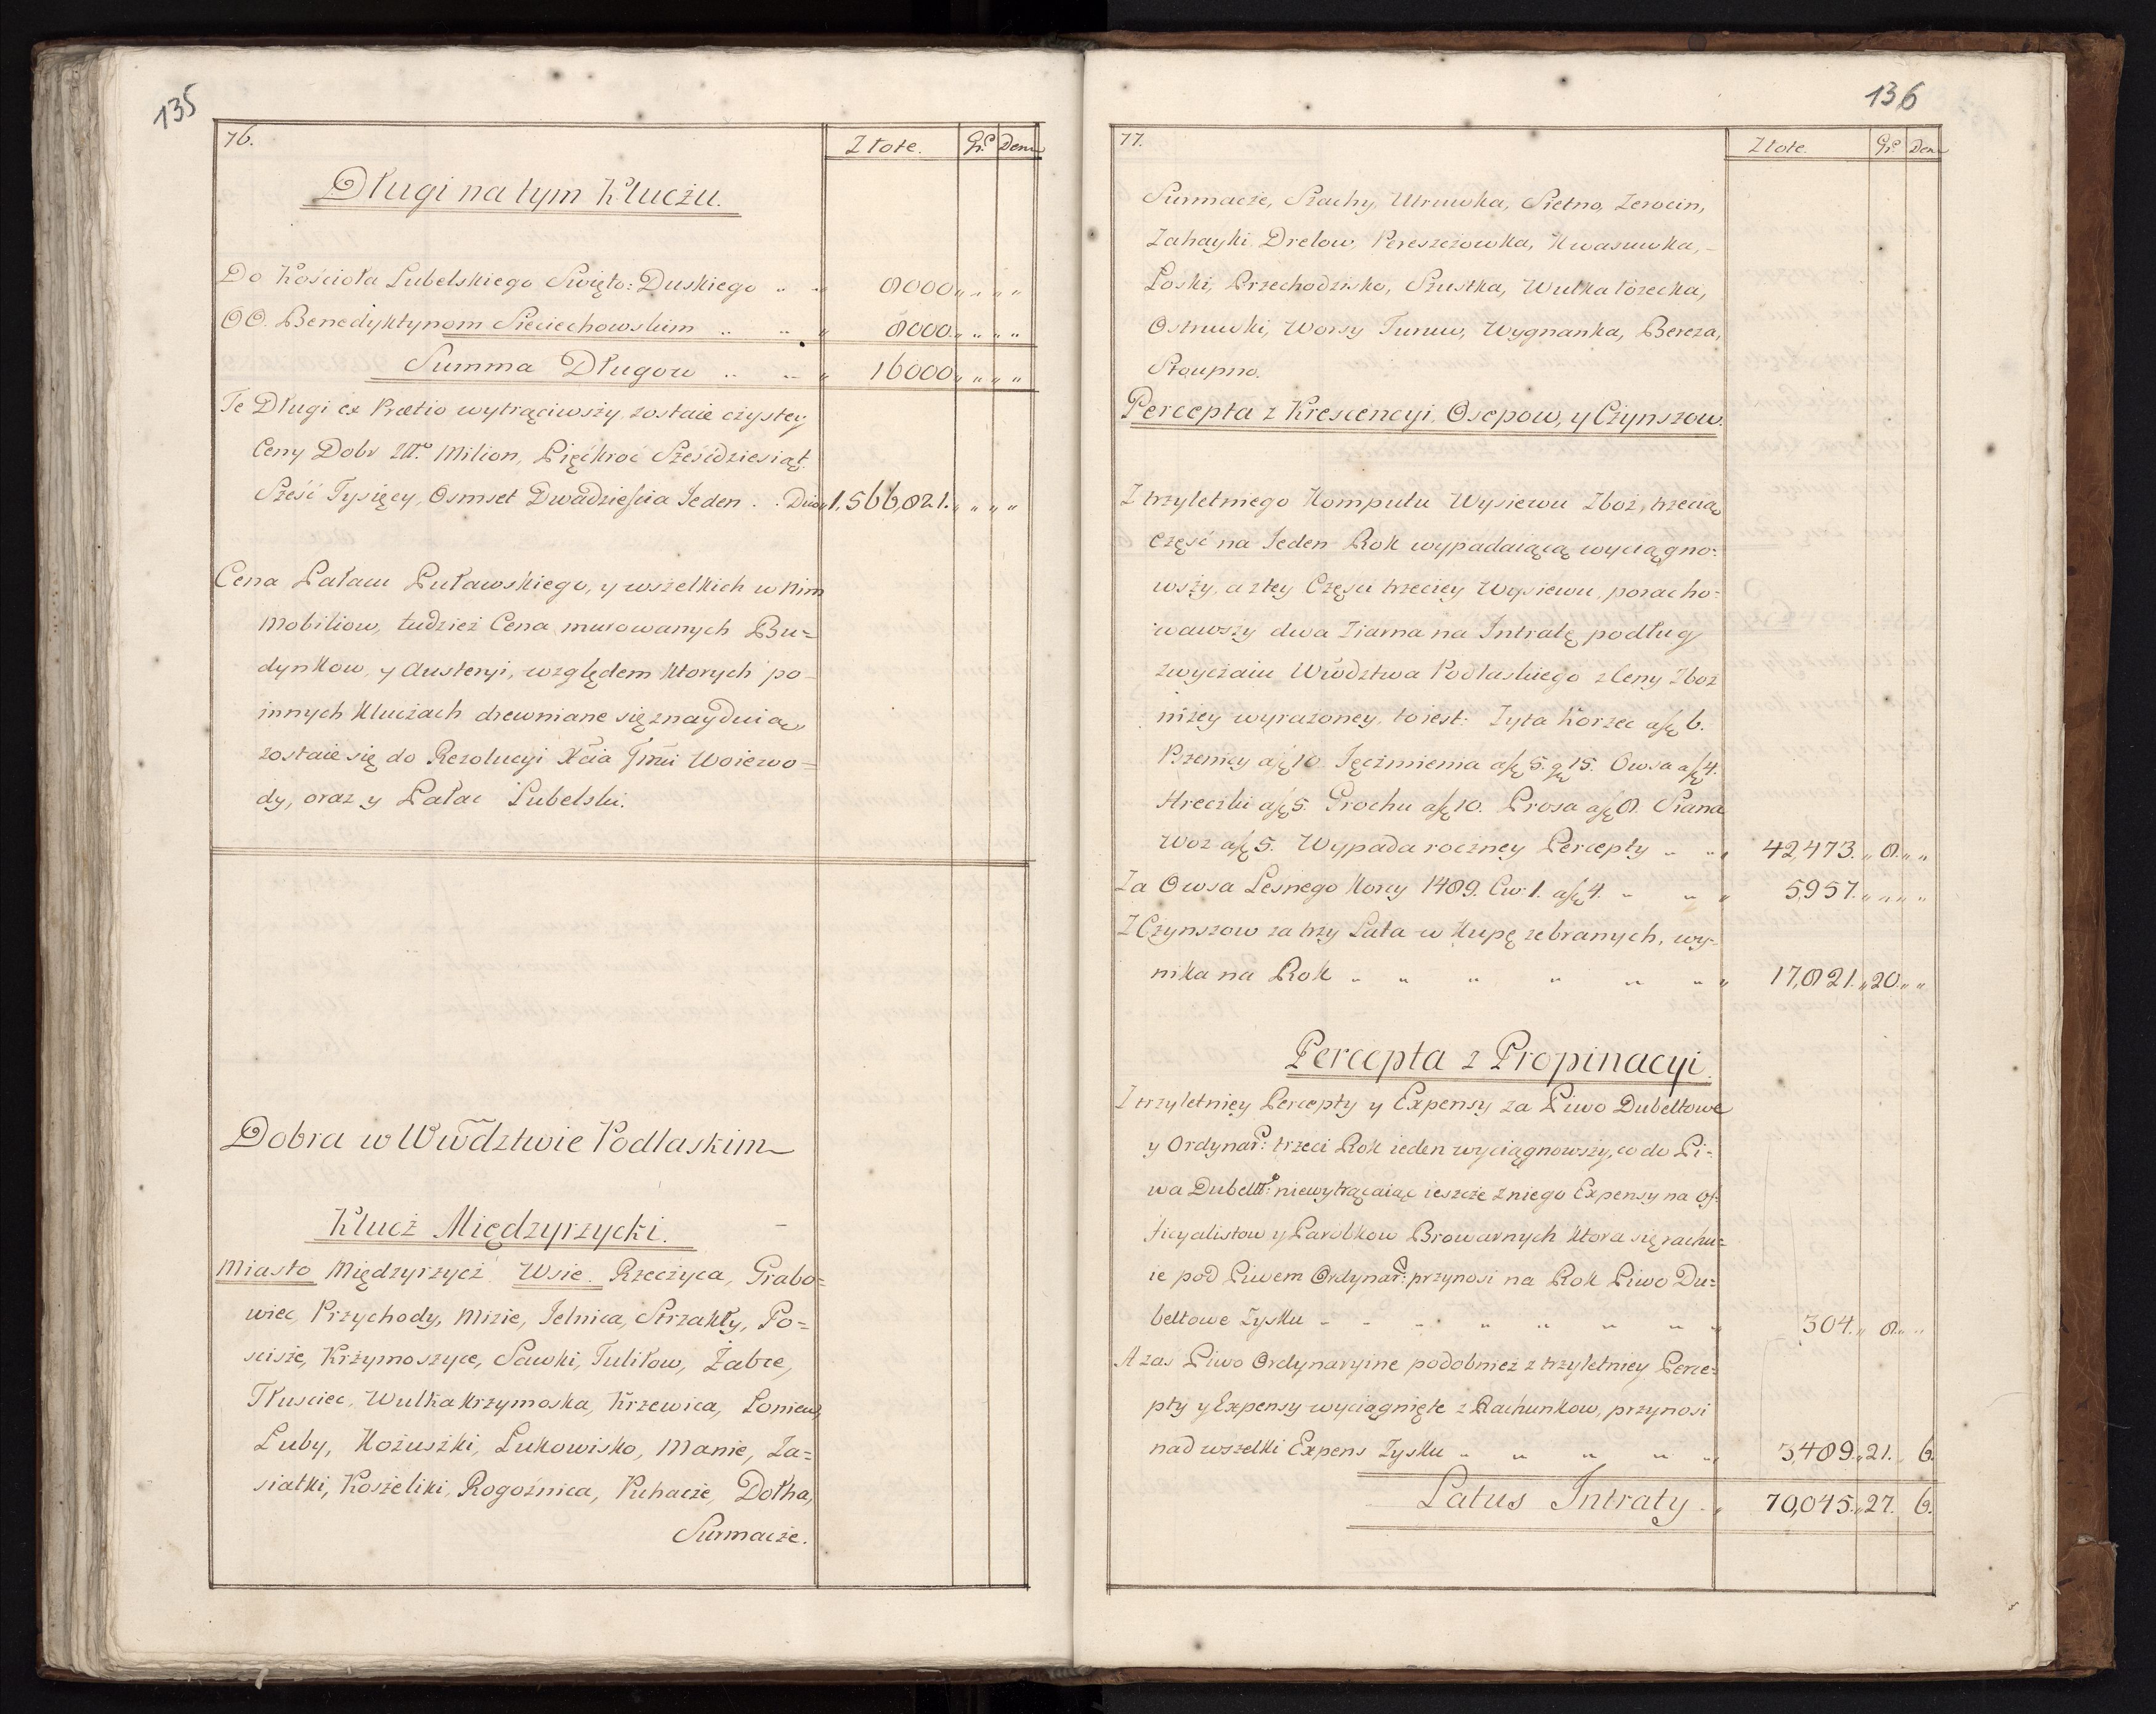 135
76.
Złote. Gr. Den.
Długi na tym Kluczu.
Do Kościoła Lubelskiego Święto: Duskiego .. .. 8000 „ „ „ „
OO. Benedyktynom Sieciechowskim .. .. „ 8000 „ „ „ „
Summa Długow .. .. „ 16000 „ „ „ „
Te Długi ex Prætio wytrąciwszy, zostaie czystey
Ceny Dobr Milion, Pięćkroć Sześćdziesiąt
Sześć Tysięcy, Osmset Dwadzieścia Jeden . . 1,566,821. „ „ „
Cena Pałacu Puławskiego, y wszelkich w nim
Mobiliow, tudzież Cena murowanych Bu=
dynkow, y Austeryi, względem ktorych po
innych Kluczach drewniane się znayduią,
zostaie się do Rezolucyi Xcia Jmci Woiewo=
dy, oraz y Pałac Lubelski.
Dobra w Wwdztwie Podlaskim
Klucz Międzyrzycki.
Miasto Międzyrzycz Wsie. Rzeczyca, Grabo=
wiec, Przychody, Misie, Jelnica, Strzakły, Po=
scisze, Krzymoszyce, Sawki, Tuliłow, Żabce,
Tłusciec, Wulka Krzymoska, Krzewica, Łoniew,
Łuby, Kożuszki, Łukowisko, Manie, Za=
siatki, Koszeliki, Rogoźnica, Puhacze, Dołha,
Surmacze.
136
77.
Złote. Gr. Den.
Surmacze, Szachy, Utruwka, Sietno, Zerocin,
Zahayki Drelow, Pereszczowka, Kwasuwka,
Łoski, Przechodzisko, Szustka, Wulka łózecka,
Ostruwki, Worsy Turuw, Wygnanka, Bereza,
Stoupno.
Percepta z Krescencyi, Osepow, y Czynszow.
Z trzyletniego Komputu Wysiewu Zboż, trzecią
część na Jeden Rok wypadaiącą wyciągno=
wszy, a ztey Części trzeciey Wysiewu, poracho=
wawszy dwa Ziarna na Intratę podług
zwyczaiu Wwdztwa Podlaskiego z Ceny Zboż
niżey wyrażoney, toiest: Żyta Korzec a 6.
Pszenicy a 10. Jęczmienia a 5. g 15. Owsa a 4.
Hreczki a 5. Grochu a 10. Prosa a 8. Siana
Woz a 5. Wypada roczney Percepty .. .. 42,473. „ 8. „ „
Za Owsa Lesnego Korcy 1489. Cw: 1. a 4. .. .. „ 5,957. „ „ „ „
Z Czynszow za trzy Lata w Kupę zebranych, wy=
nika na Rok .. .. .. .. .. .. „ 17,821. „ 20. „ „
Percepta z Propinacyi.
Z trzyletniey Percepty y Expensy za Piwo Dubeltowe
y Ordynar: trzeci Rok ieden wyciągnowszy, co do Pi=
wa Dubelt: niewytrącaiąc ieszcze zniego Expensy na Of=
ficyalistow y Parobkow Browarnych ktora się rachu=
ie pod Piwem Ordynar: przynosi na Rok Piwo Du=
beltowe Zysku .. .. .. .. .. .. .. 304. „ 8. „ „
A zas Piwo Ordynaryine podobnież z trzyletniey Perce=
pty y Expensy wyciągnięte z Rachunkow, przynosi
nad wszelki Expens Zysku .. .. .. .. .. 3,489. „ 21. „ 6.
Latus Intraty .. 70,045. „ 27. 6.